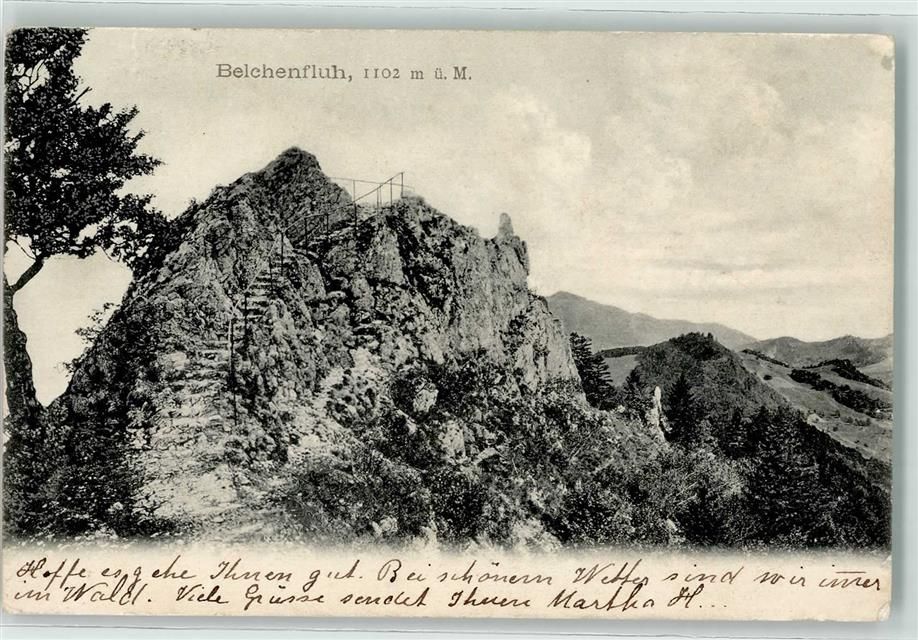 Belchenfluh, 1102 m ü. M.
Hoffe es gehe Ihnen gut. Bei schönem Wetter sind wir immer
im Wald. Viele Grüsse sendet Ihnen Martha H...